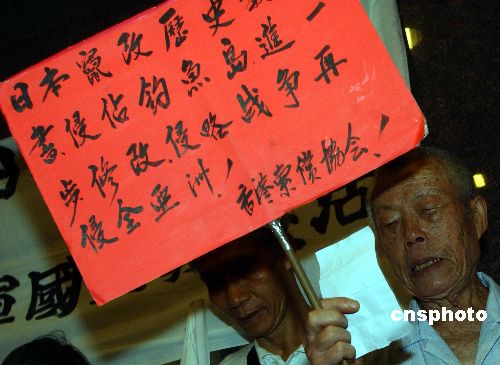 日本竄改歷史教
書侵佔釣魚島進一
步修改侵略战争再
侵全亚洲！
香港索償協會！
軍國
cnsphoto